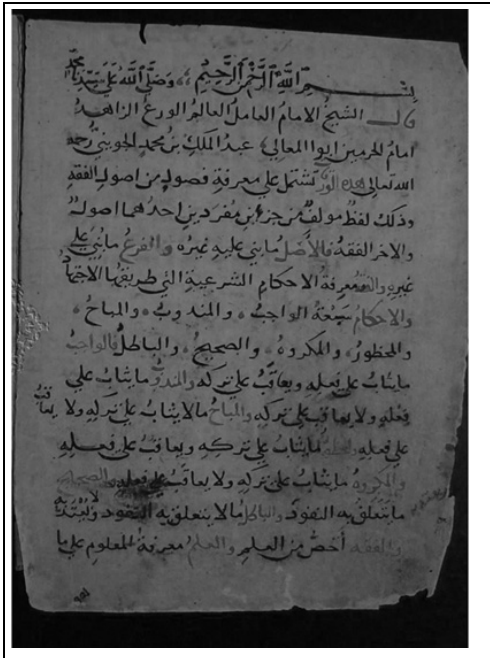 بسم الله الرحمن الرحيم وصلى الله على سيدنا محمد
قال الشيخ الامام العامل العالم الورع الزاهد
امام الحرمين ابوا المعالي عبد الملك بن محمد الجويني رحمه
الله تعالى هذه تشتمل على معرفة فصول من اصول الفقه
وذلك لفظ مولف من جزءين مفردين احدهما اصول
والاخر الفقه فالاصل ما بني عليه غيره والفرع ما بني على
غيره والفقه معرفة الاحكام الشرعية التي طريقها الاجتهاد
والاحكام سبعة الواجب والمندوب والمباح
والمحظور والمكروه والصحيح والباطل فالواجب
ما يثاب على فعله ويعاقب على تركه والمندوب ما يثاب على
فعله ولا يعاقب على تركه والمباح ما لا يثاب على تركه ولا يعاقب
على فعله والمحظور ما يثاب على تركه ويعاقب على فعله
والمكروه ما يثاب على تركه ولا يعاقب على فعله والصحيح
ما يتعلق به النفوذ ويعتد به والباطل ما لا يتعلق به النفوذ ولا يعتد به
والفقه أخص من العلم والعلم معرفة المعلوم على ما